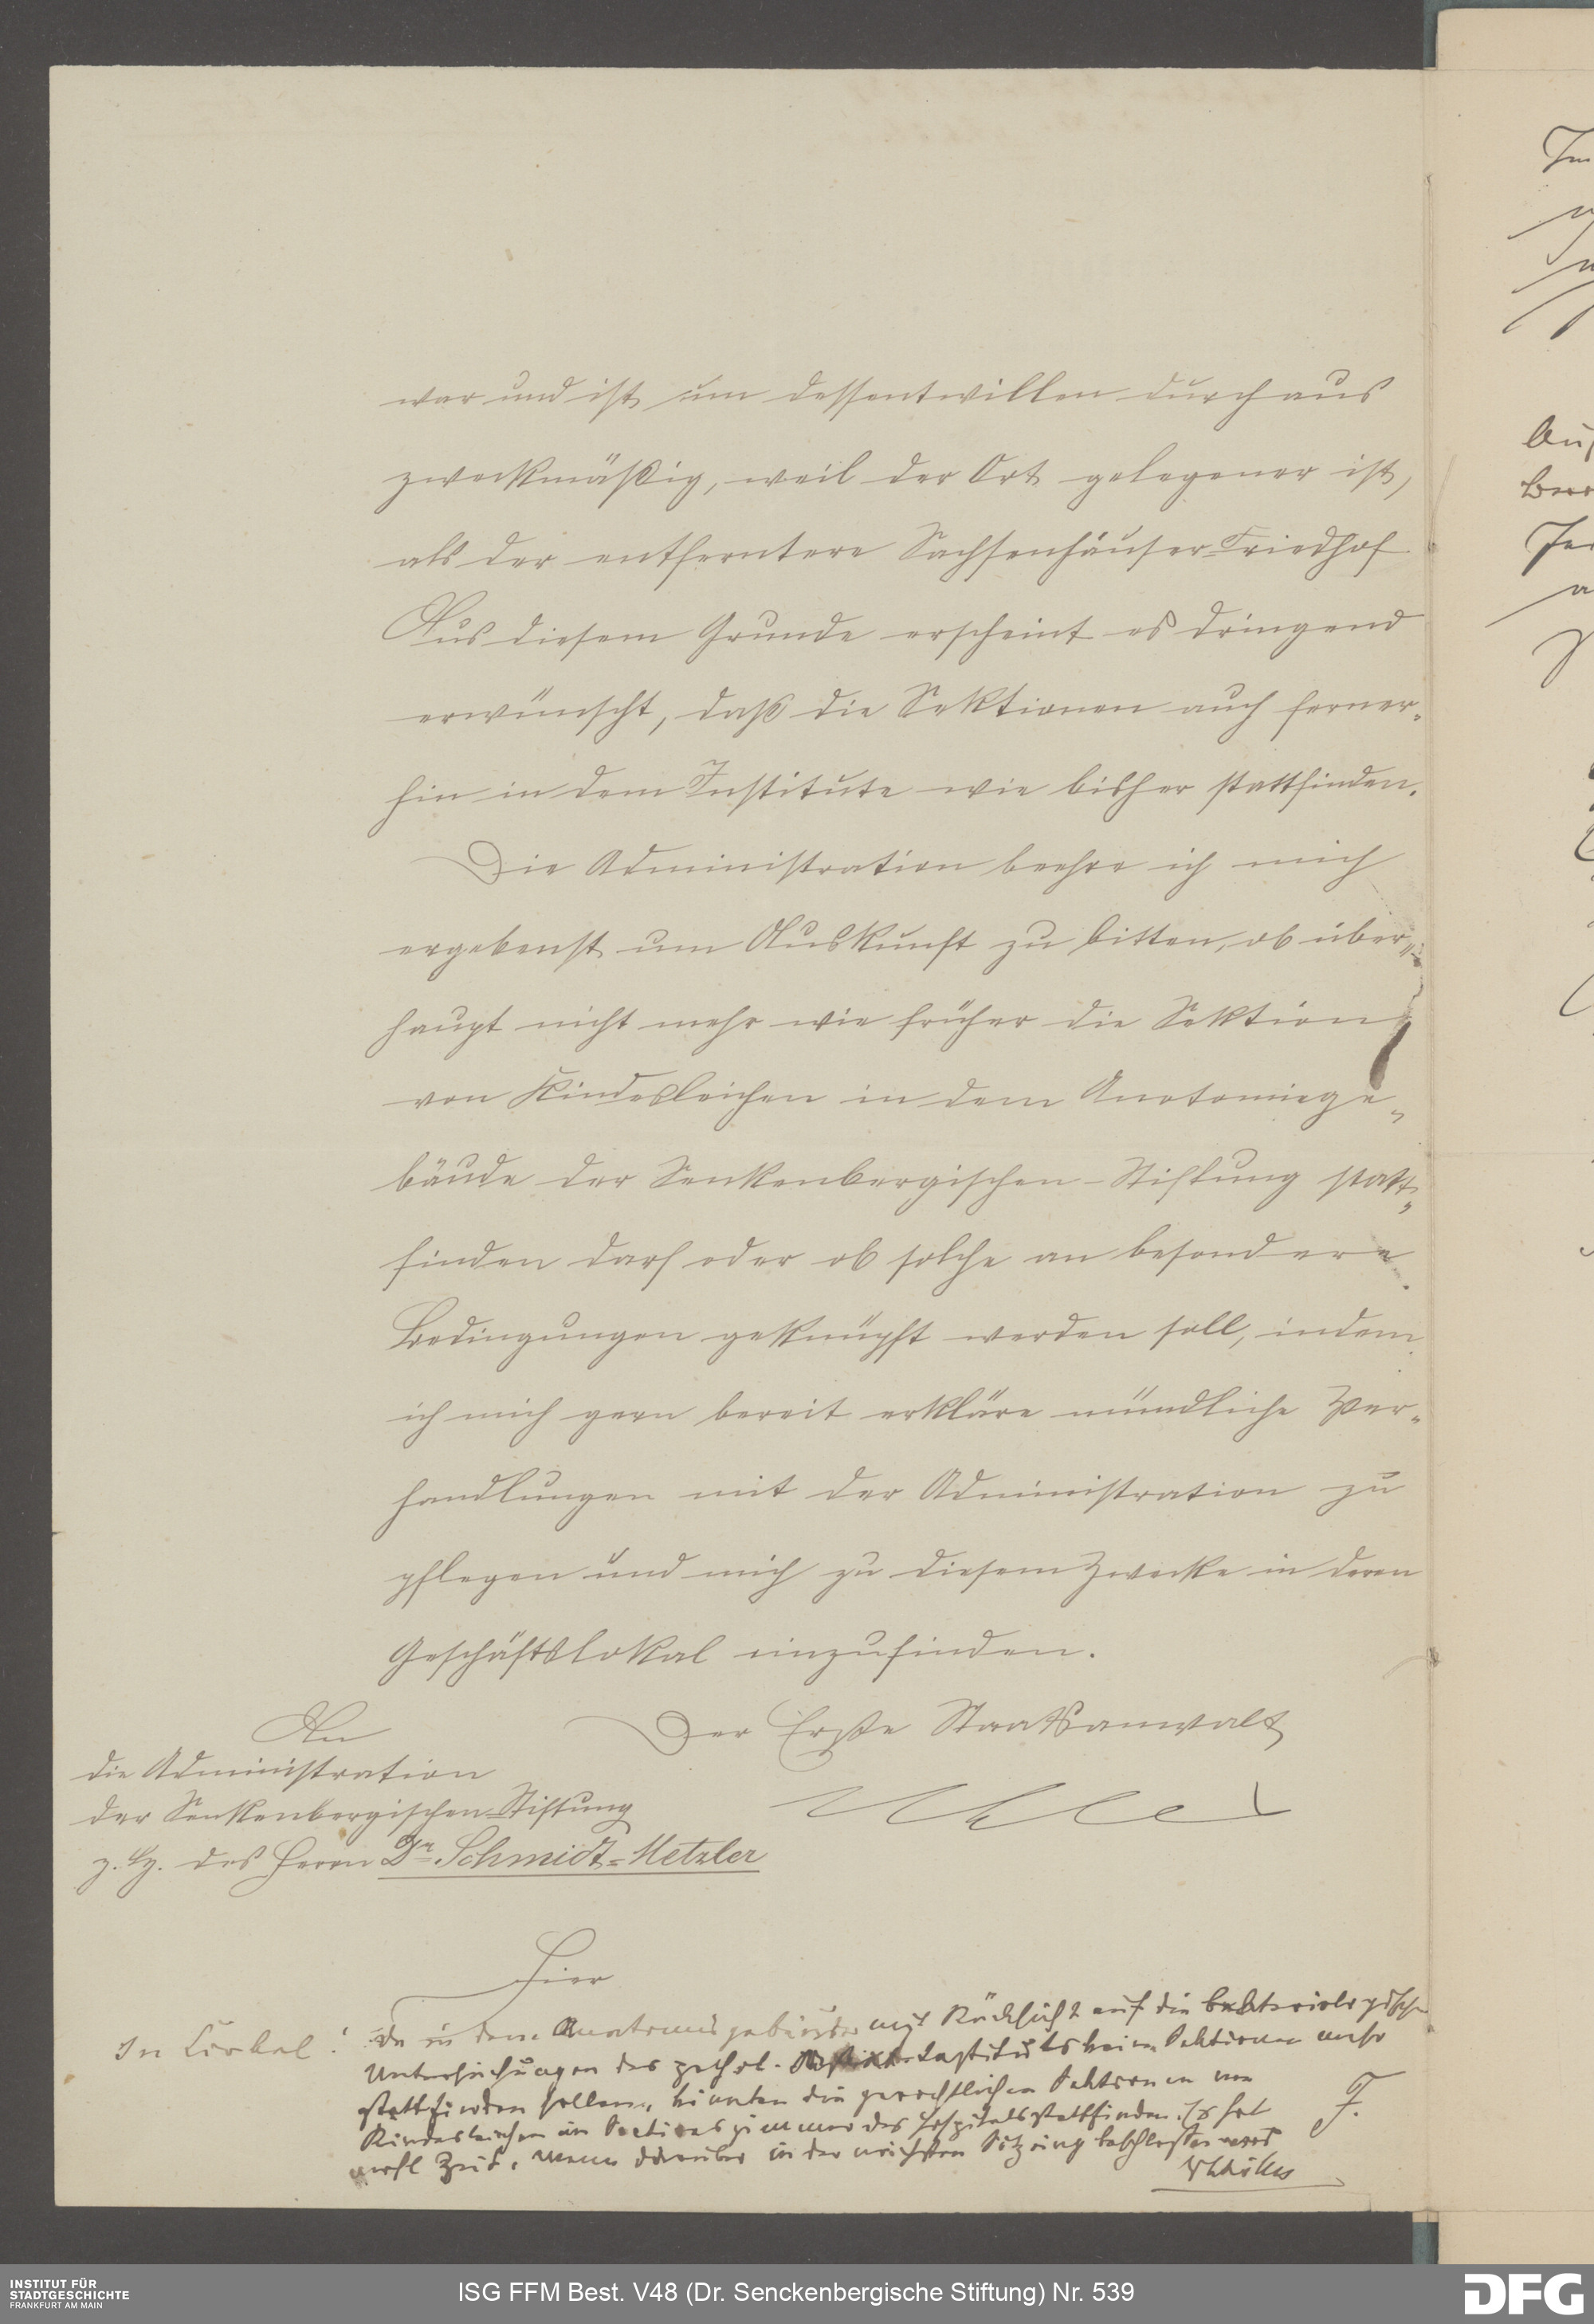 war und ist um dessentwillen durchaus
zweckmäßig, weil der Ort gelegener ist,
als der entferntere Sachsenhäuser-Friedhof
Aus diesem Grunde erscheint es dringend
erwünscht, daß die Sektionen auch ferner-
hin in dem Institute wie bisher stattfinden.
Die Administration beehre ich mich
ergebenst um Auskunft zu bitten, ob über-
haupt nicht mehr wie früher die Sektion
von Kindesleichen in dem Anatomiege-
bäude der Senkenbergischen-Stiftung statt-
finden darf oder ob solche an besondere
Bedingungen geknüpft werden soll, indem
ich mich gern bereit erkläre mündliche Ver-
handlungen mit der Administration zu
pflegen und mich zu diesem Zwecke in deren
Geschäftslokal einzufinden.
Der Erste Staatsanwalt
An
die Administration
der Senkenbergischen-Stiftung
z. H. des Herrn Dr. Schmidt-Metzler
Hier
In Cirkel!
Da in dem Anatomiegebäude mit Rücksicht auf die bakteriologischen
Untersuchungen des pathol. Instituts keine Sektionen mehr
stattfinden sollen, könnten die gerichtlichen Sektionen von
Kindesleichen im Sectionszimmer des Hospitals stattfinden. Es hat
wohl Zeit, wenn darüber in der nächsten Sitzung beschlossen wird
F.
ISG FFM Best. V48 (Dr. Senckenbergische Stiftung) Nr. 539
INSTITUT FÜR
STADTGESCHICHTE
FRANKFURT AM MAIN
DFG